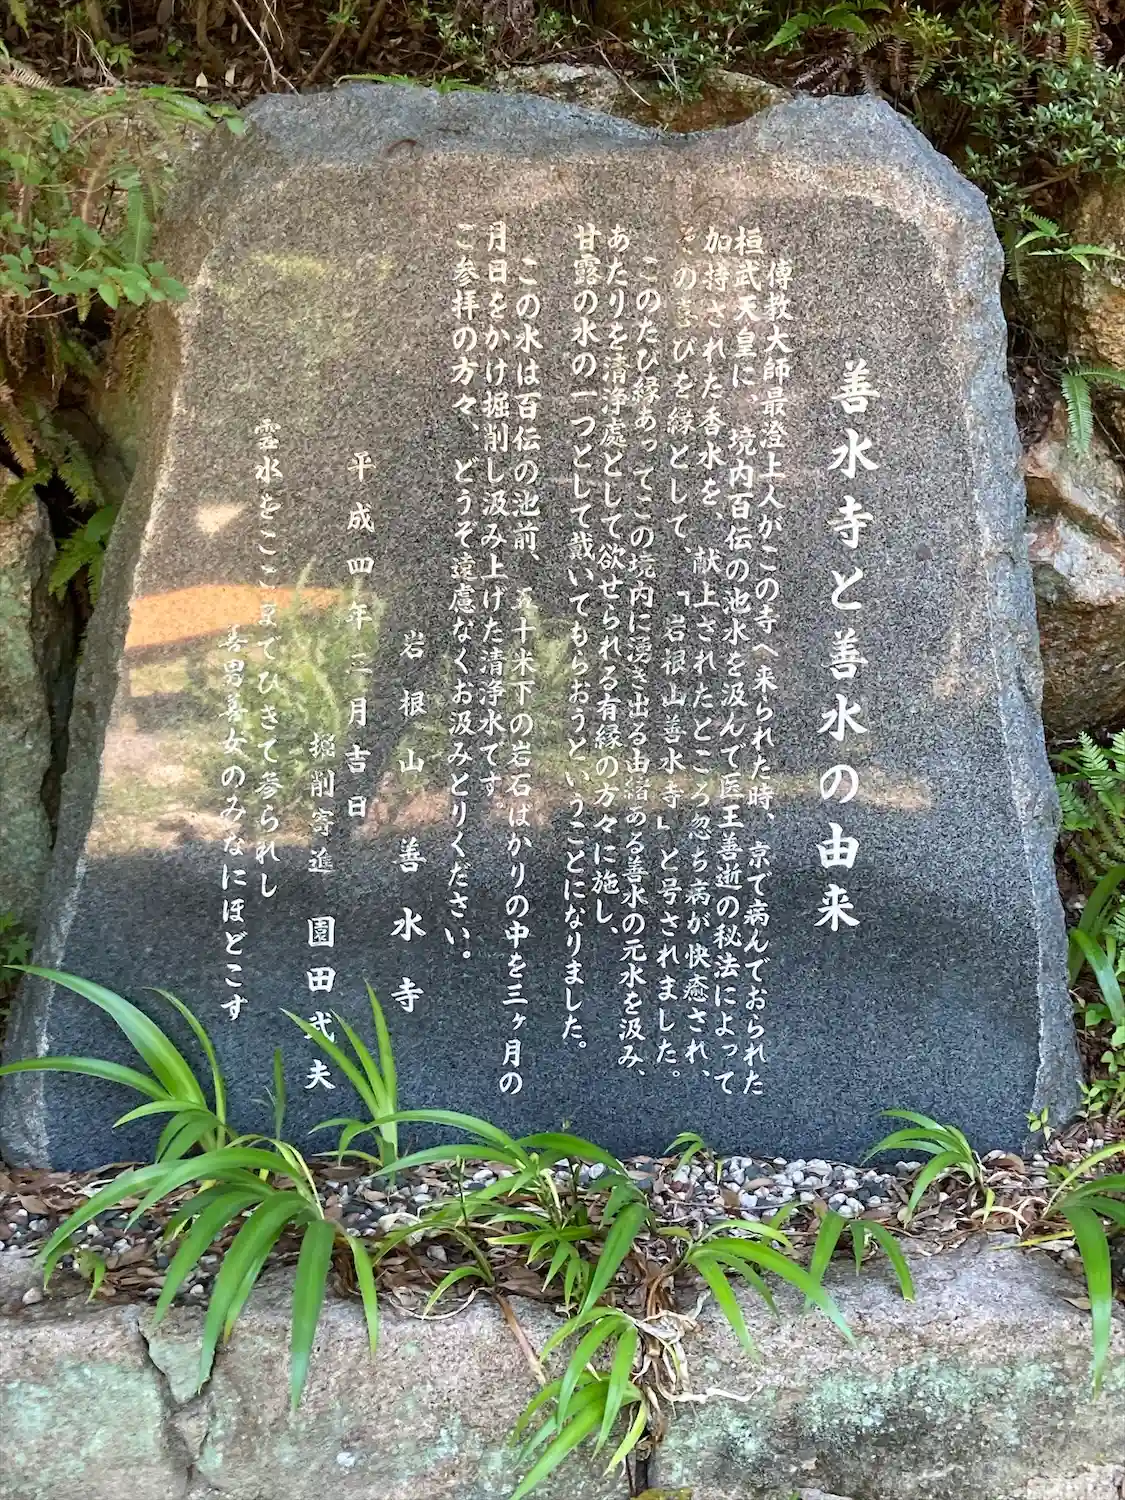 善水寺と善水の由来
傳教大師最澄上人がこの寺へ来られた時、京で病んでおられた
桓武天皇に、境内百伝の池水を汲んで医王善逝の秘法によって
加持された香水を、献上されたところ忽ち病が快癒され、
そのよろこびを縁として、「岩根山善水寺」と号されました。
このたび縁あってこの境内に湧き出る由緒ある善水の元水を汲み、
あたりを清浄處として欲せられる有縁の方々に施し、
甘露の水の一つとして戴いてもらおうということになりました。
この水は百伝の池前、五十米下の岩石ばかりの中を三ヶ月の
月日をかけ掘削し汲み上げた清浄水です
ご参拝の方々、どうぞ遠慮なくお汲みとりください。
岩根山善水寺
平成四年三月吉日
掘削寄進 園田武夫
霊水をここまでひきて参られし
善男善女のみなにほどこす